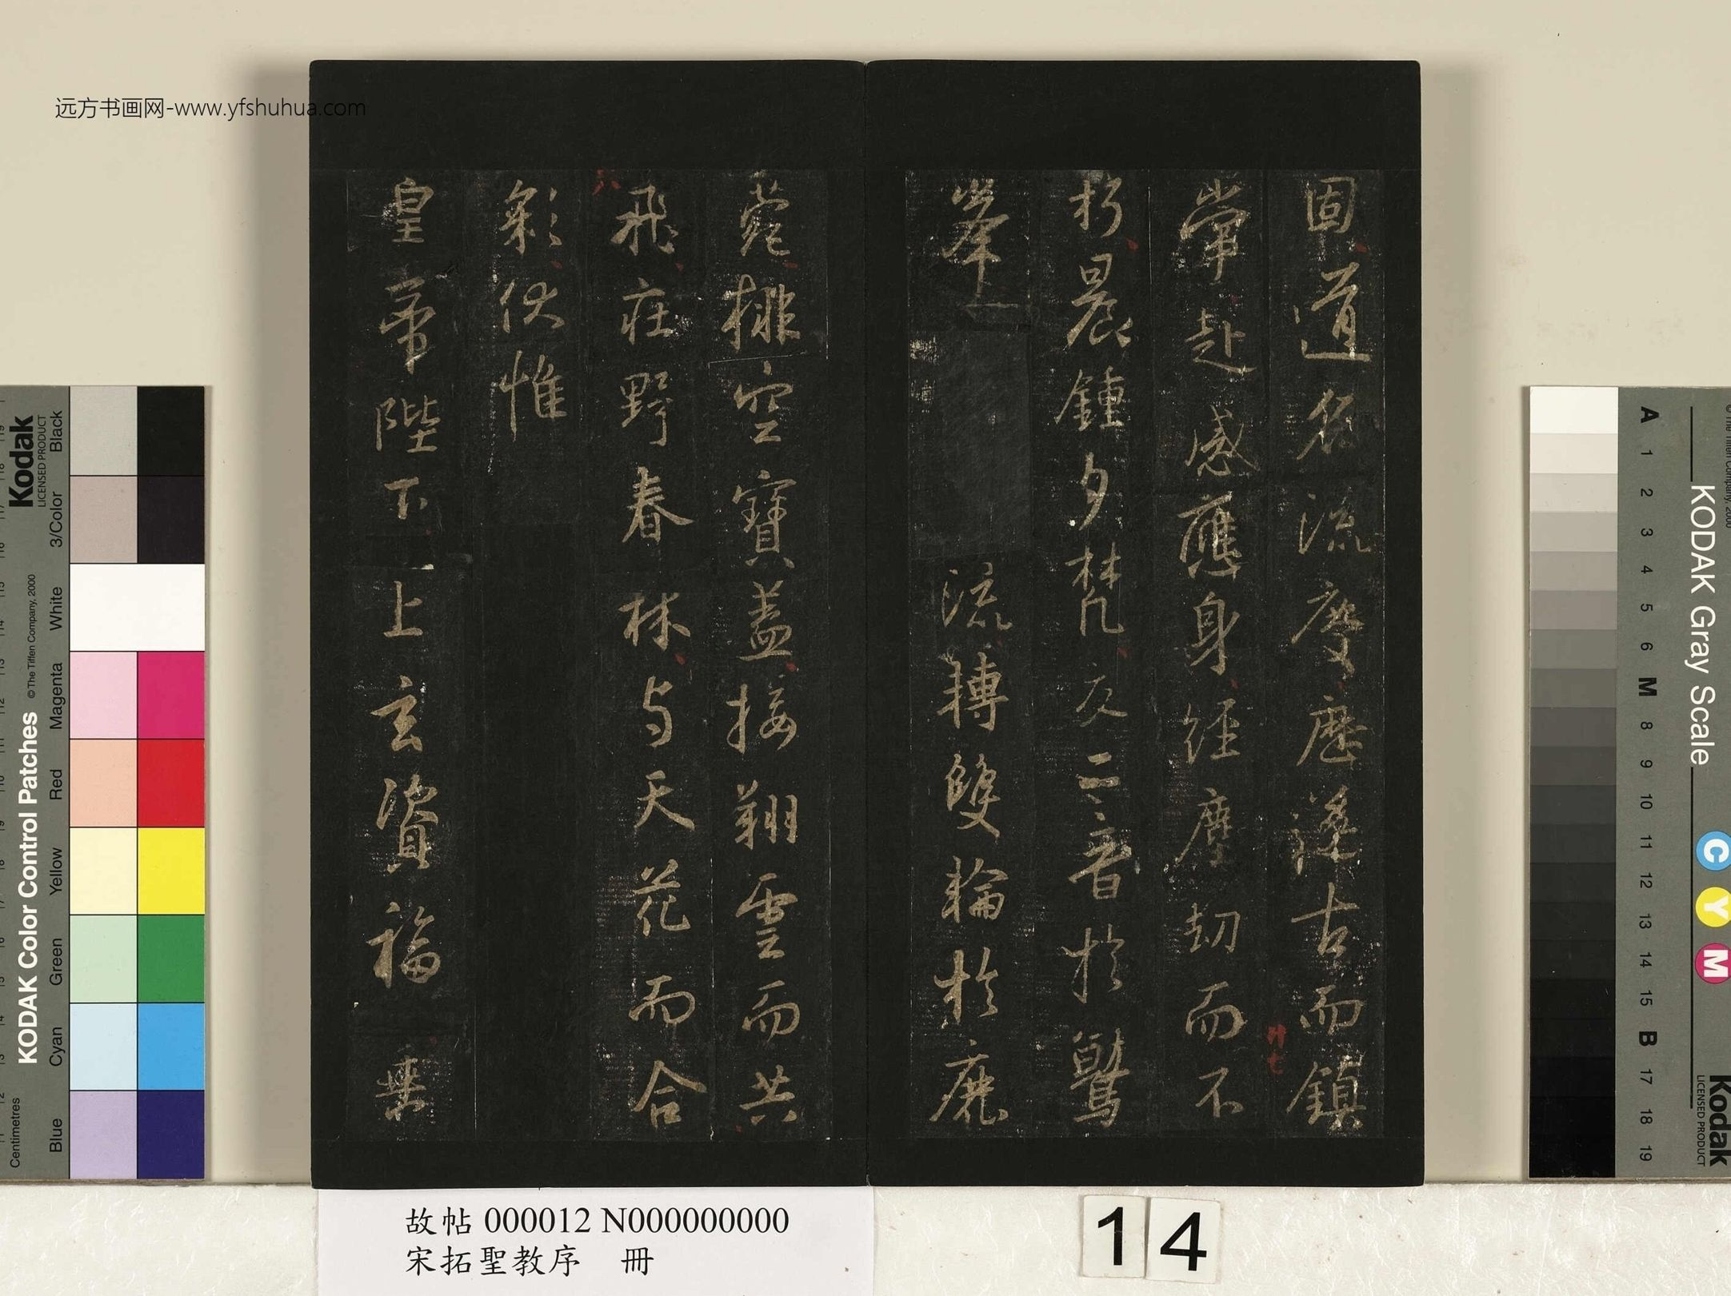 固道名流慶歷遂古而鎮
常赴感應身經塵劫而不
朽晨鍾夕梵交二音於鷲
峯 流轉雙輪於鹿
菀排空寶蓋接翔雲而共
飛莊野春林與天花而合
彩伏惟
皇帝陛下上玄資福垂
廿七
远方书画网-www.yfshuhua.com
故帖 000012 N000000000
宋拓聖教序 冊
14
KODAK Color Control Patches
© The Tiffen Company, 2000
Kodak
LICENSED PRODUCT
Centimetres
Blue
Cyan
Green
Yellow
Red
Magenta
White
3/Color
Black
KODAK Gray Scale
A 1 2 3 4 5 6 M 8 9 10 11 12 13 14 15 B 17 18 19
C
Y
M
Kodak
LICENSED PRODUCT